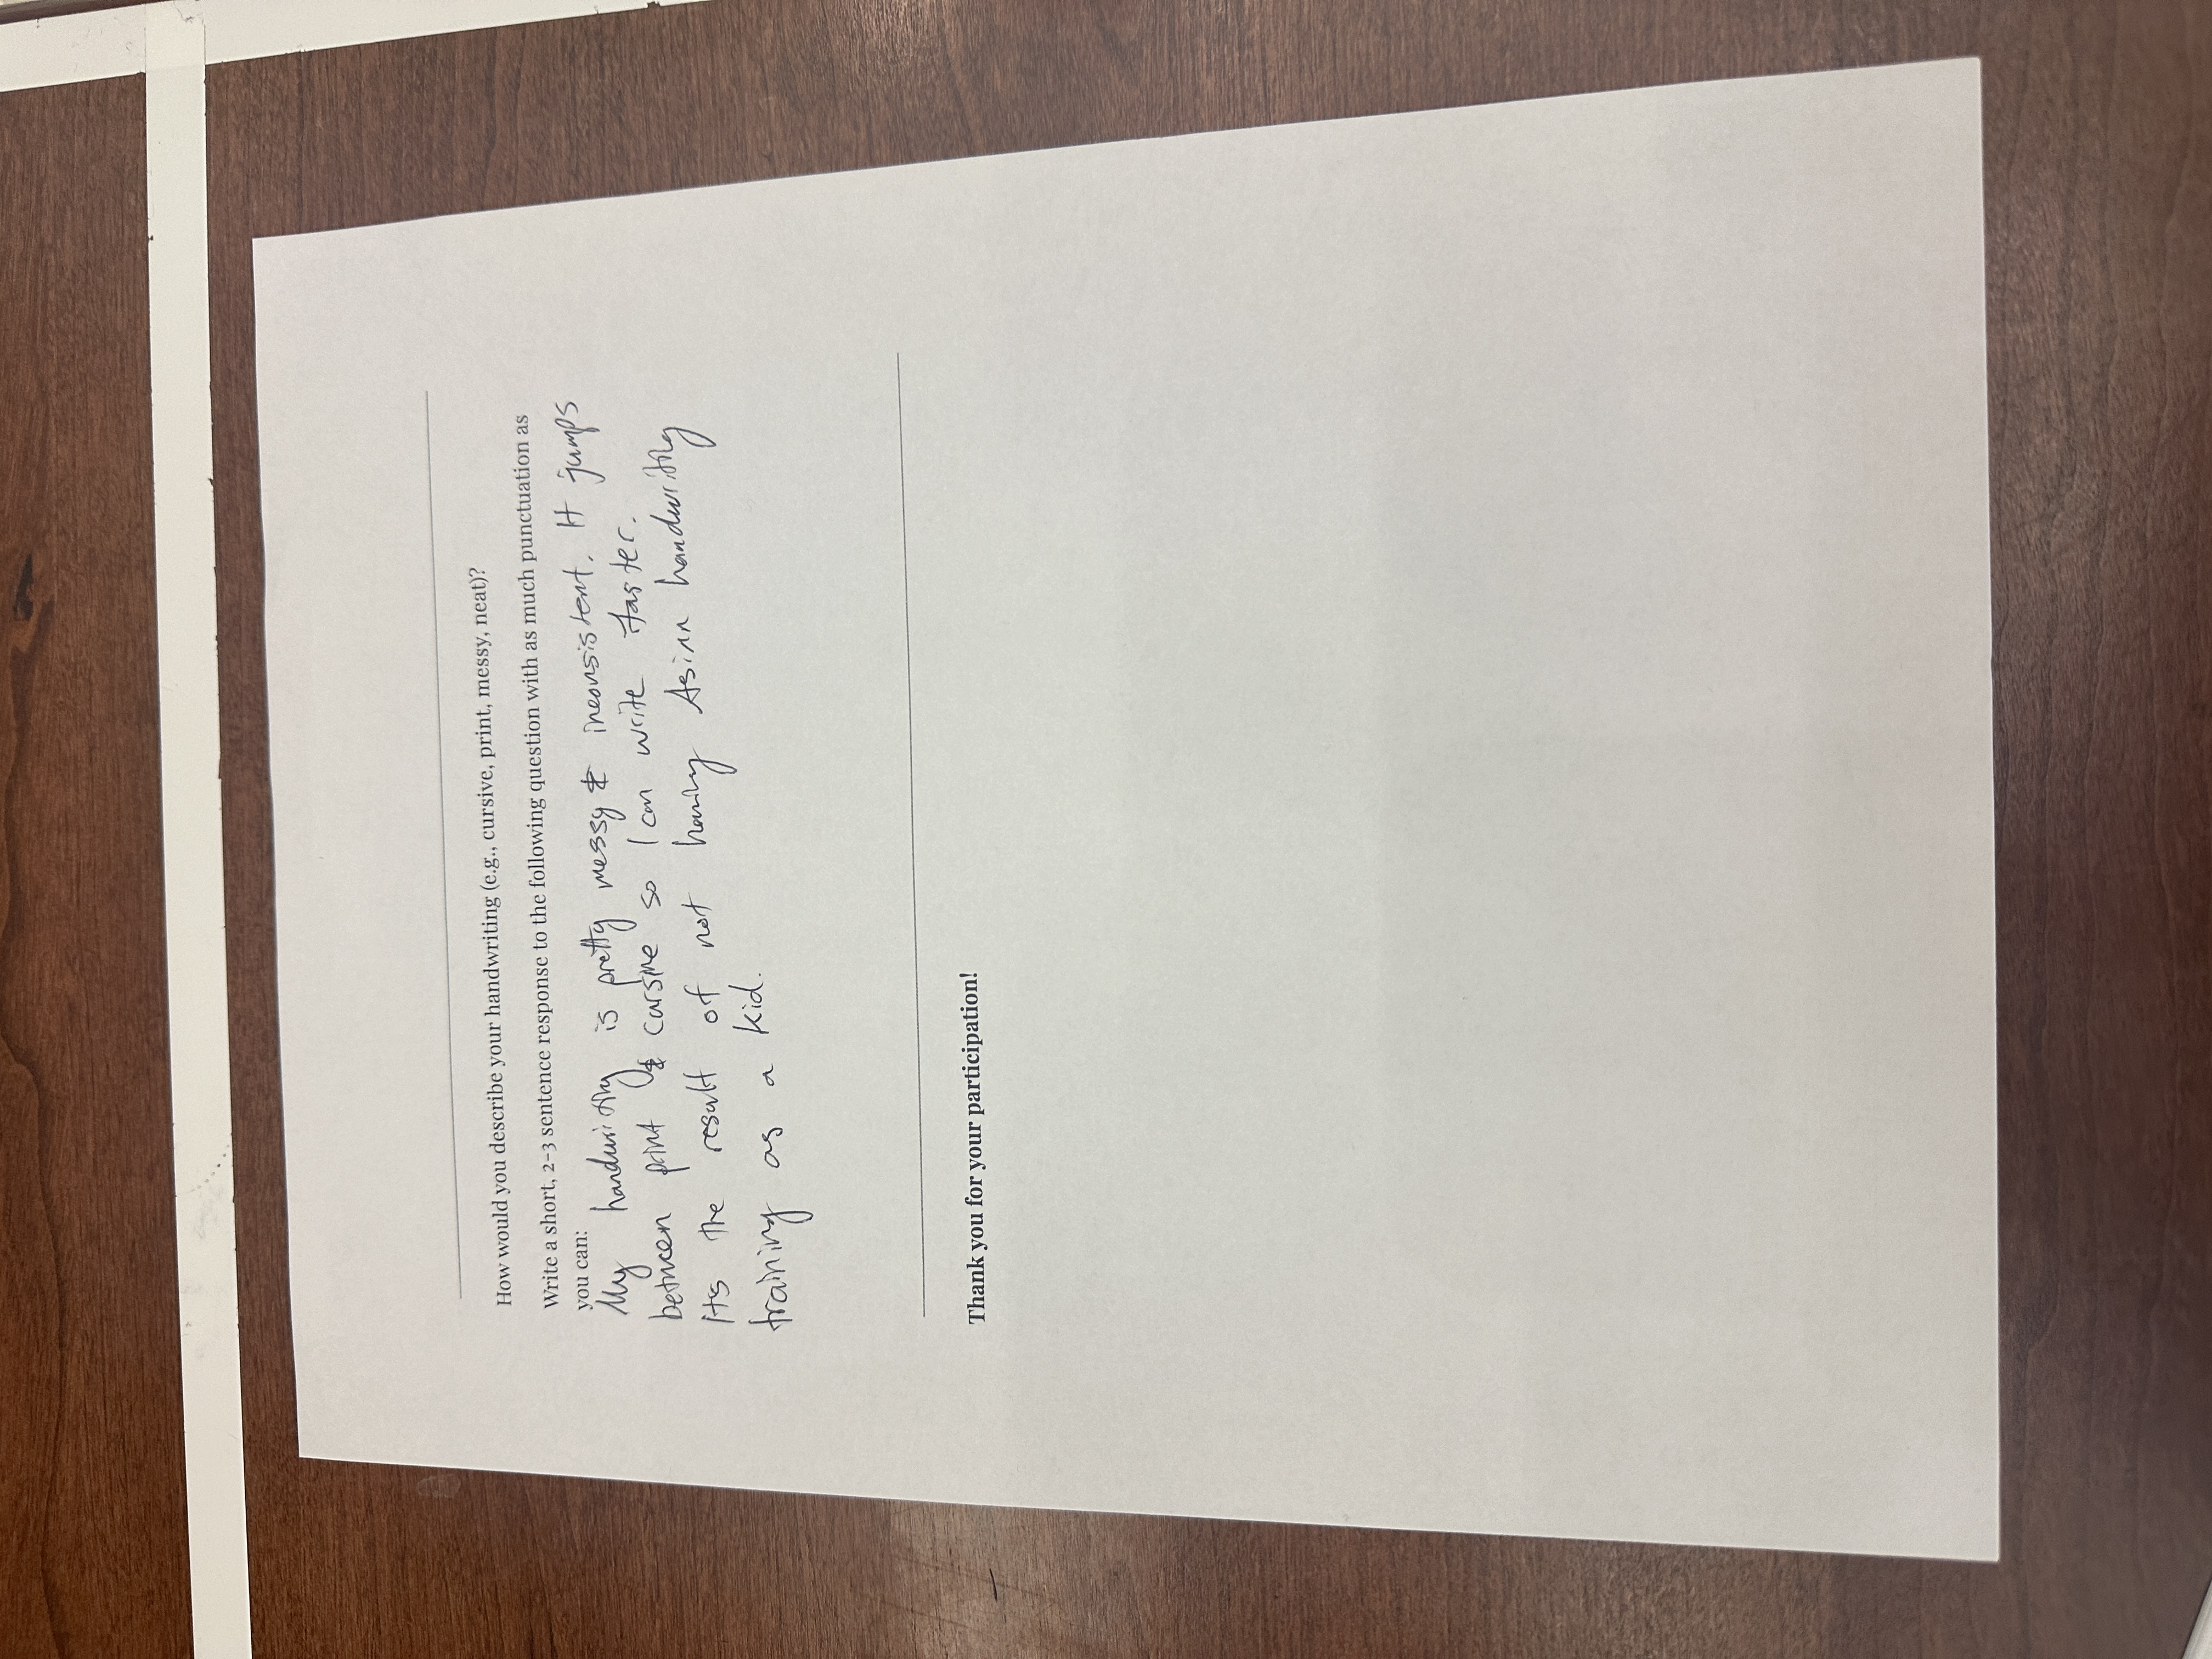 How would you describe your handwriting (e.g., cursive, print, messy, neat)?
Write a short, 2-3 sentence response to the following question with as much punctuation as
you can:
My handwriting is pretty messy & inconsistent. It jumps
between print & cursive so I can write faster.
It's the result of not having Asian handwriting
training as a kid.
Thank you for your participation!